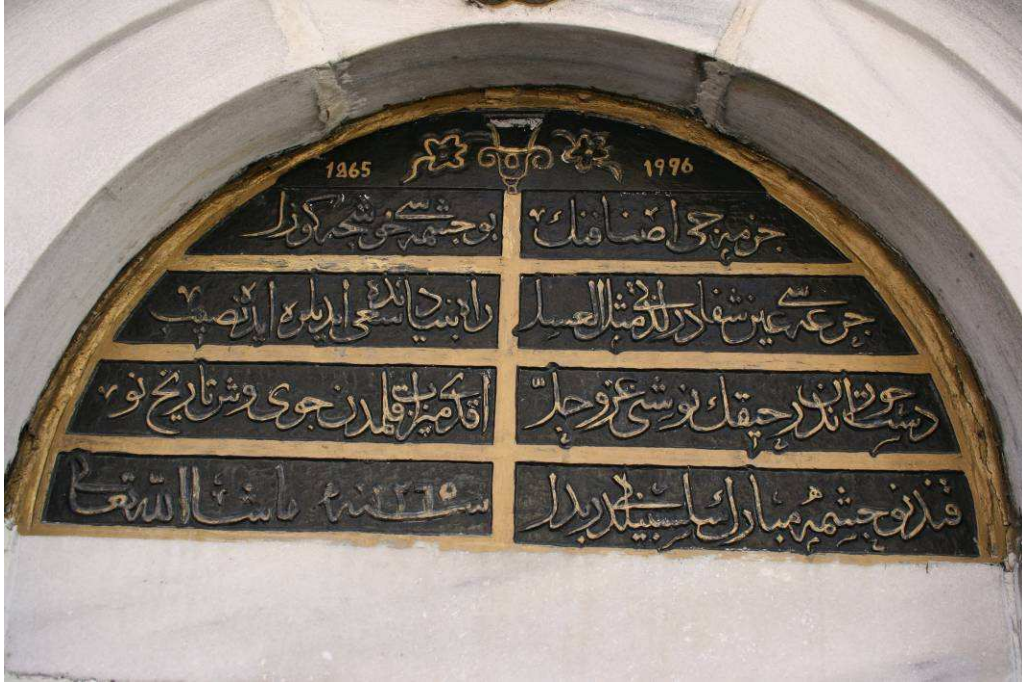 1865 1996
جزمه جی اصنافنك بو چشمه سی خوشجه كوزل
جرعه سی عین شفادر لذتی مثل العسل رانبنیادنده سعی ایدنلره ایده نصیب
دست حوراندن رحیقك نوشنی عز و جل اقدی میزاب قلمدن جوی وش تاریخ نو
قندنو چشمه مبارك سلسبیلدر بدل سنه ١٢٦٥ ماشاالله تعالی